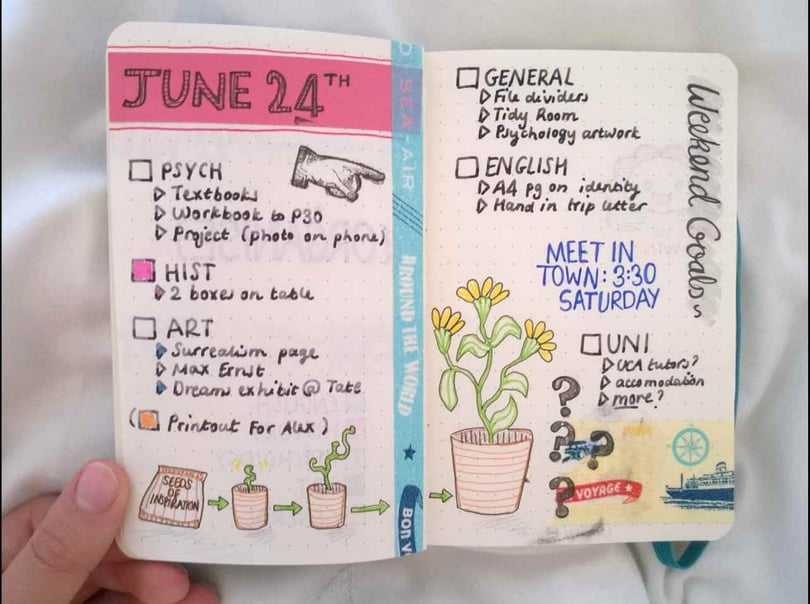 JUNE 24TH
PSYCH
Textbooks
Workbook to P30
Project (photo on phone)
HIST
2 boxes on table
ART
Surrealism page
Max Ernst
Dreams exhibit @ Tate
(Printout For Alex)
SEEDS
OF
INSPIRATION
SEA-AIR
AROUND THE WORLD
BON V
GENERAL
File dividers
Tidy Room
Psychology artwork
ENGLISH
A4 pg on identity
Hand in trip letter
Weekend Goals
MEET IN
TOWN: 3:30
SATURDAY
UNI
UCA tutors?
accomodation
more?
? ? ? ?
VOYAGE